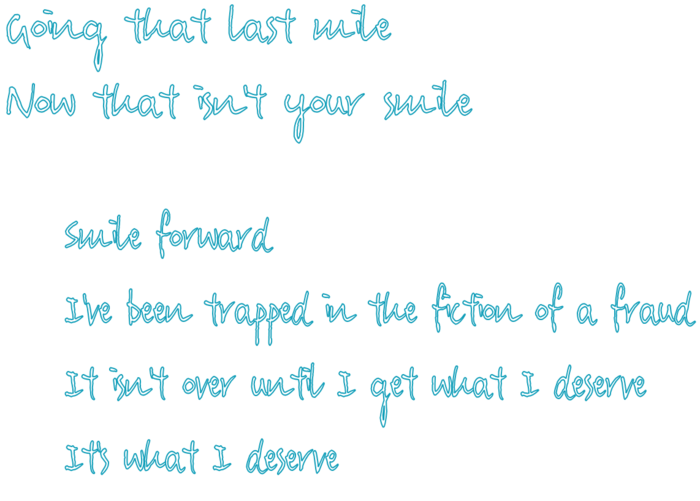 Going that last mile
Now that isn't your smile
Smile forward
I've been trapped in the fiction of a fraud
It isn't over until I get what I deserve
It's what I deserve